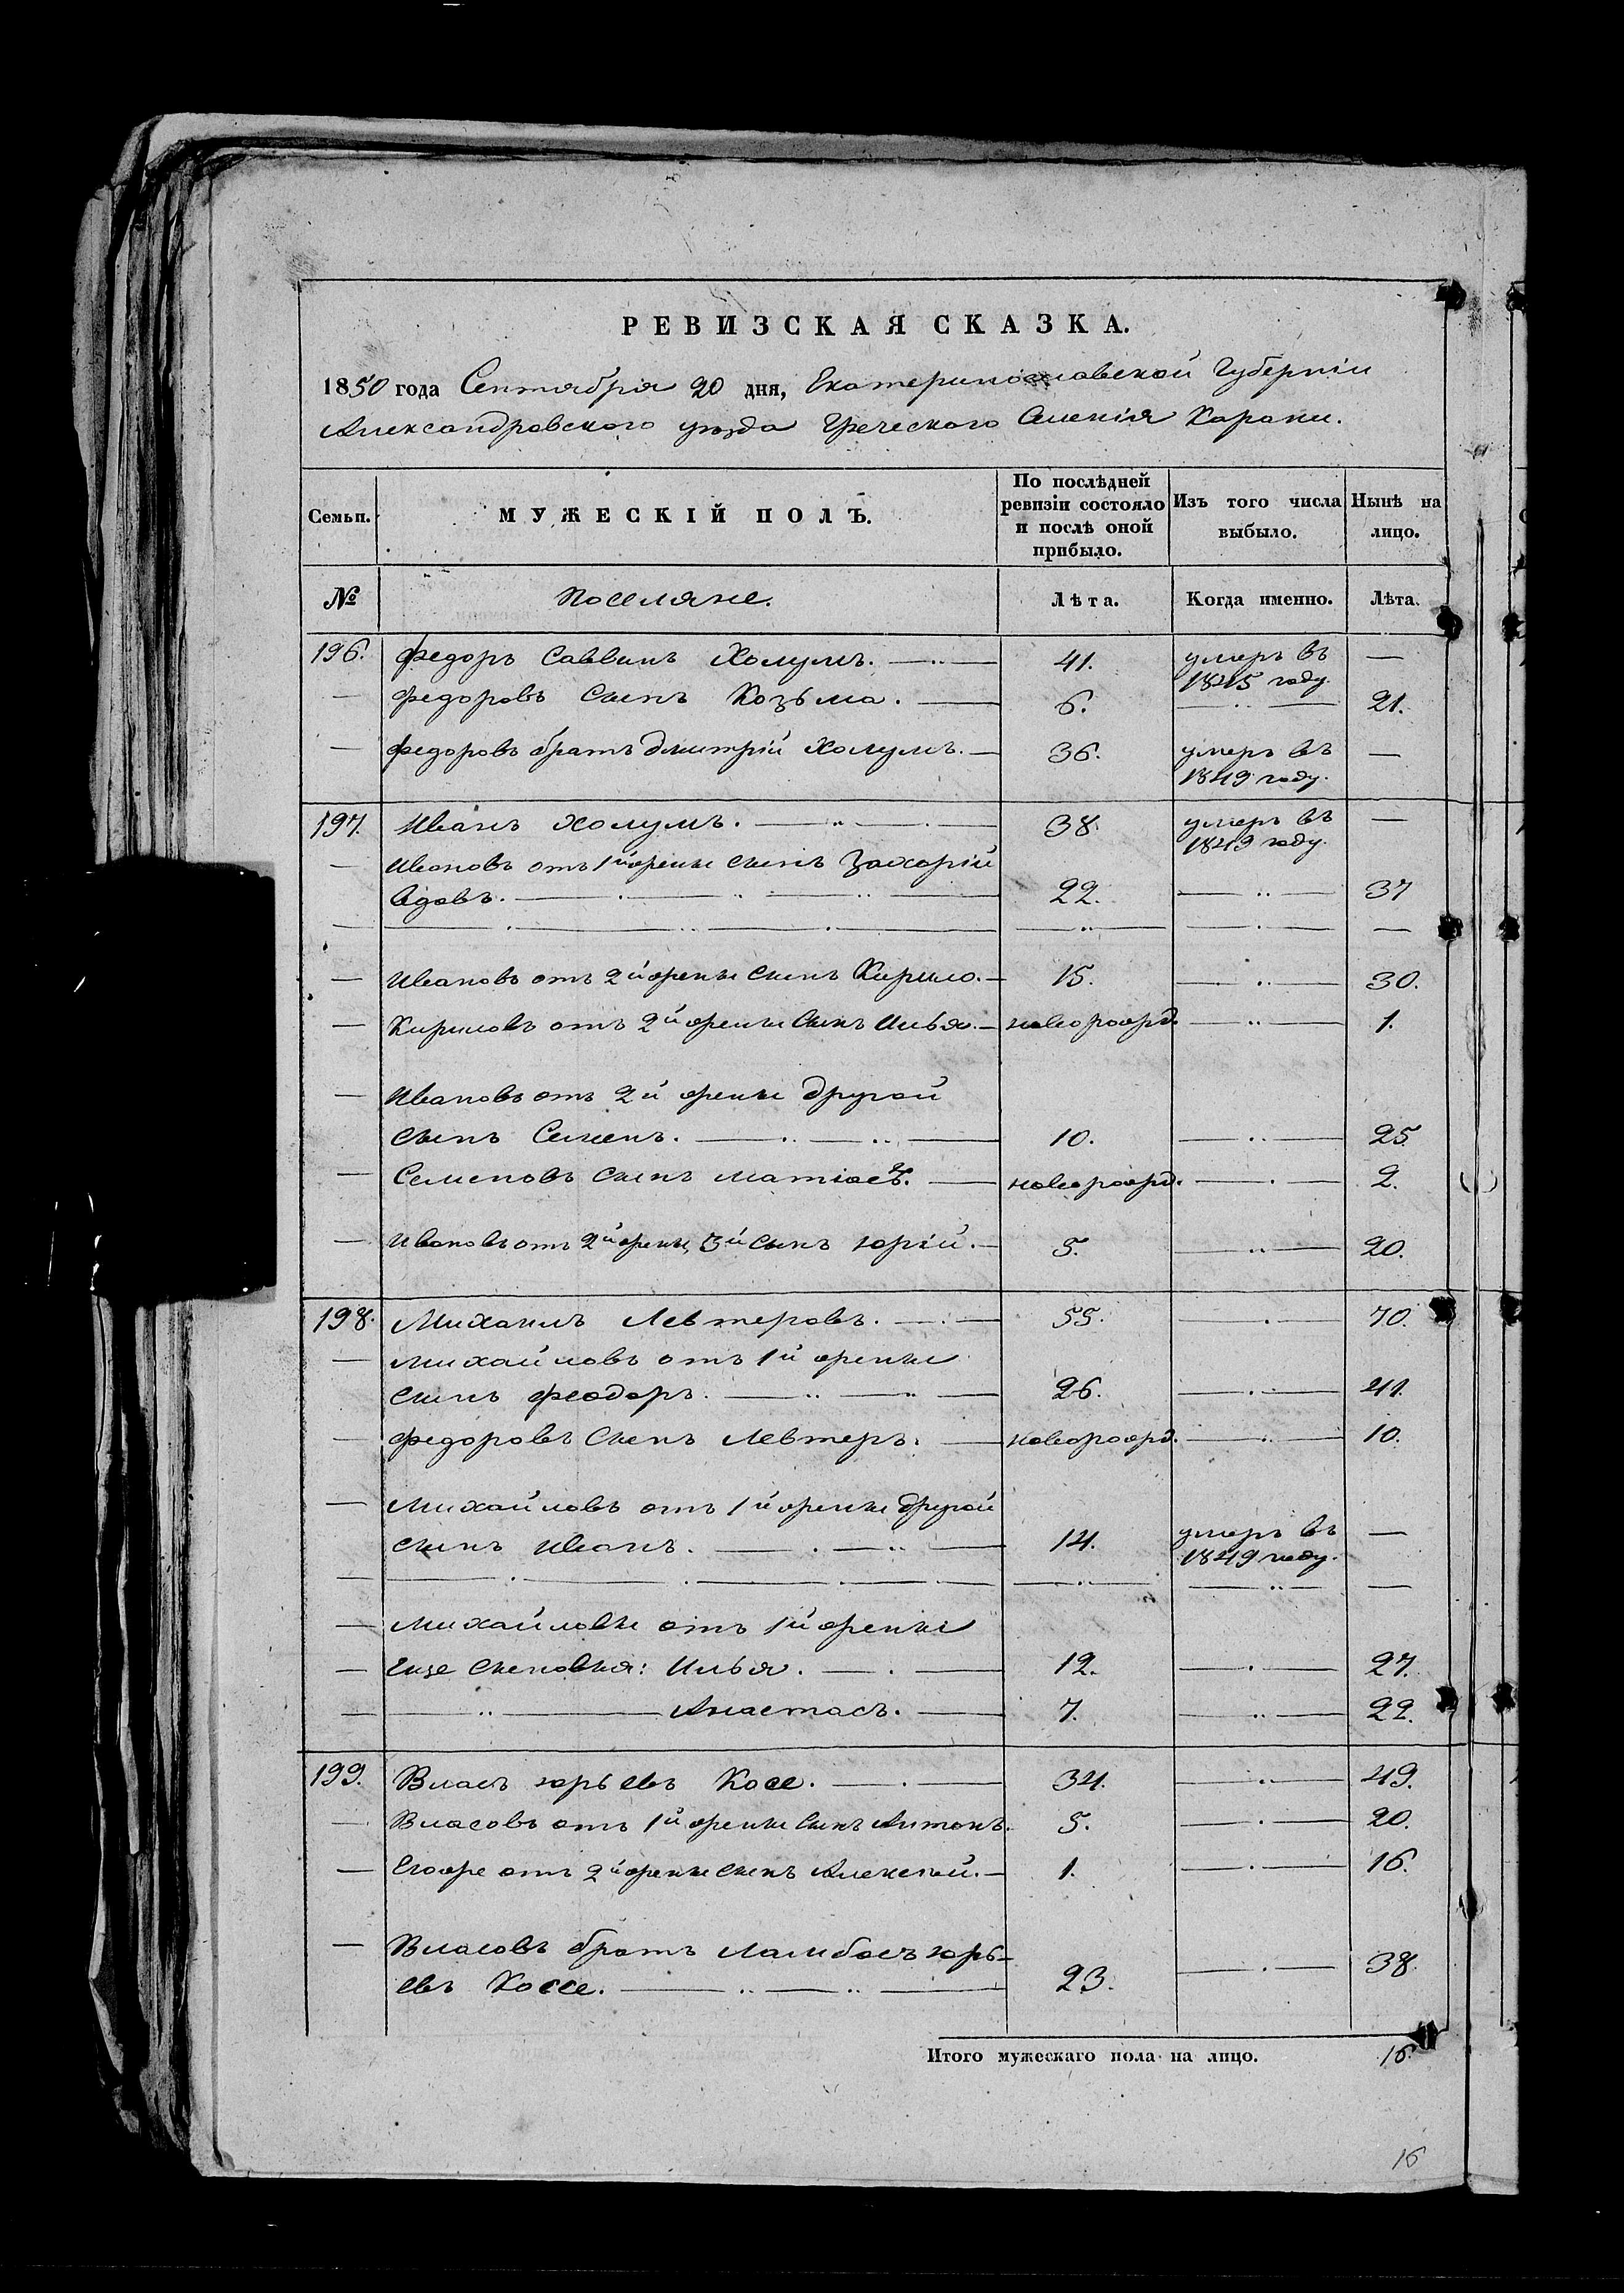 РЕВИЗСКАЯ СКАЗКА.
1850 года Сентября 20 дня, Екатеринославской Губерніи
Александровского уѣзда Греческого Селенія Карани.
Семьи. МУЖЕСКІЙ ПОЛЪ. По послѣдней ревизіи состояло и послѣ оной прибыло. Изъ того числа выбыло. Нынѣ на лицо.
№ Поселяне. Лѣта. Когда именно. Лѣта.
196. Федоръ Саввинъ Халумъ. 41. умеръ въ 1845 году. —
— Федоровъ Сынъ Козьма. 6. — 21.
— Федоровъ братъ Дмитрій Халумъ. 36. умеръ въ 1849 году. —
197. Иванъ Халумъ. 38. умеръ въ 1849 году. —
— Ивановъ отъ 1й жены сынъ Захарій
Вдовъ. 22. — 37
— Ивановъ отъ 2й жены сынъ Кирило. 15. — 30.
— Кириловъ отъ 2й жены Сынъ Илья. новорожд. — 1.
— Ивановъ отъ 2й жены другой
сынъ Семенъ. 10. — 25
— Семеновъ сынъ Матіасъ. новорожд. — 2.
— Ивановъ отъ 2й жены 3й сынъ Юрій. 5. — 20.
198. Михаилъ Левтеровъ. 55. — 70.
— Михайловъ отъ 1й жены
сынъ Феодоръ. 26. — 41.
— Федоровъ Сынъ Левтеръ. новорожд. — 10.
— Михайловъ отъ 1й жены другой
сынъ Иванъ. 14. умеръ въ 1849 году. —
— Михайловы отъ 1й жены
— Еще сыновья: Илья. 12. — 27.
— Анастасъ. 7. — 22.
199. Власъ Юрьевъ Косе. 34. — 49.
— Власовъ отъ 1й жены Сынъ Антонъ. 5. — 20.
— Егоже отъ 2й жены сынъ Алексѣй. 1. — 16.
— Власовъ братъ Ламбосъ Юрь-
евъ Коссе. 23. — 38.
Итого мужескаго пола на лицо. 16.
16